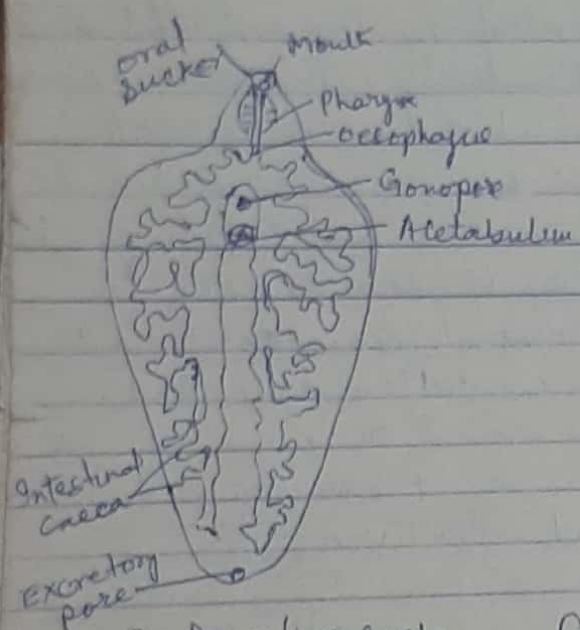 Oral
Sucker
Mouth
Pharynx
Oesophague
Gonopore
Acetabulum
Intestinal
Caeca
Excretory
Pore